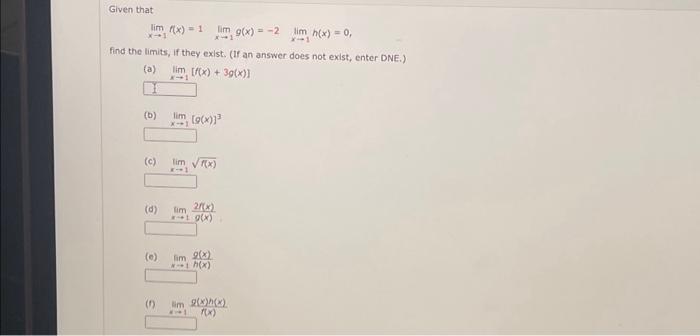 Given that
lim x→1 f(x) = 1 lim x→1 g(x) = -2 lim x→1 h(x) = 0,
find the limits, if they exist. (If an answer does not exist, enter DNE.)
(a) lim x→1 [f(x) + 3g(x)]
(b) lim x→1 [g(x)]³
(c) lim x→1 √f(x)
(d) lim x→1 2f(x)/g(x)
(e) lim x→1 g(x)/h(x)
(f) lim x→1 g(x)h(x)/f(x)